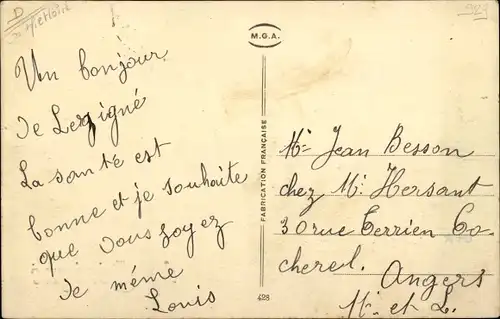 D
M.G.A.
Un bonjour
de Lezigné
La santé est
bonne et je souhaite
que vous soyez
de même
Louis
FABRICATION FRANÇAISE
428
Mr Jean Besson
chez Mr Hersant
30 rue Terrien Co-
cherel.
Angers
M. et L.